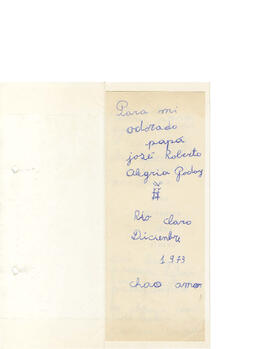 Para mi
adorado
papá
josé Roberto
Alegria Godoy
Río Claro
Diciembre
1973
chao amor